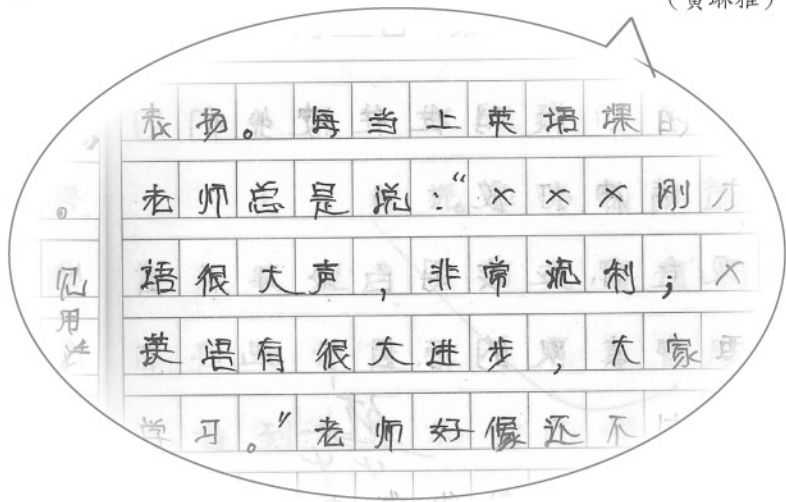 (黄琳雅)
表扬。每当上英语课的
老师总是说:“×××刚才
语很大声,非常流利;×
英语有很大进步,大家要
学习。”老师好像还不
。
见
用